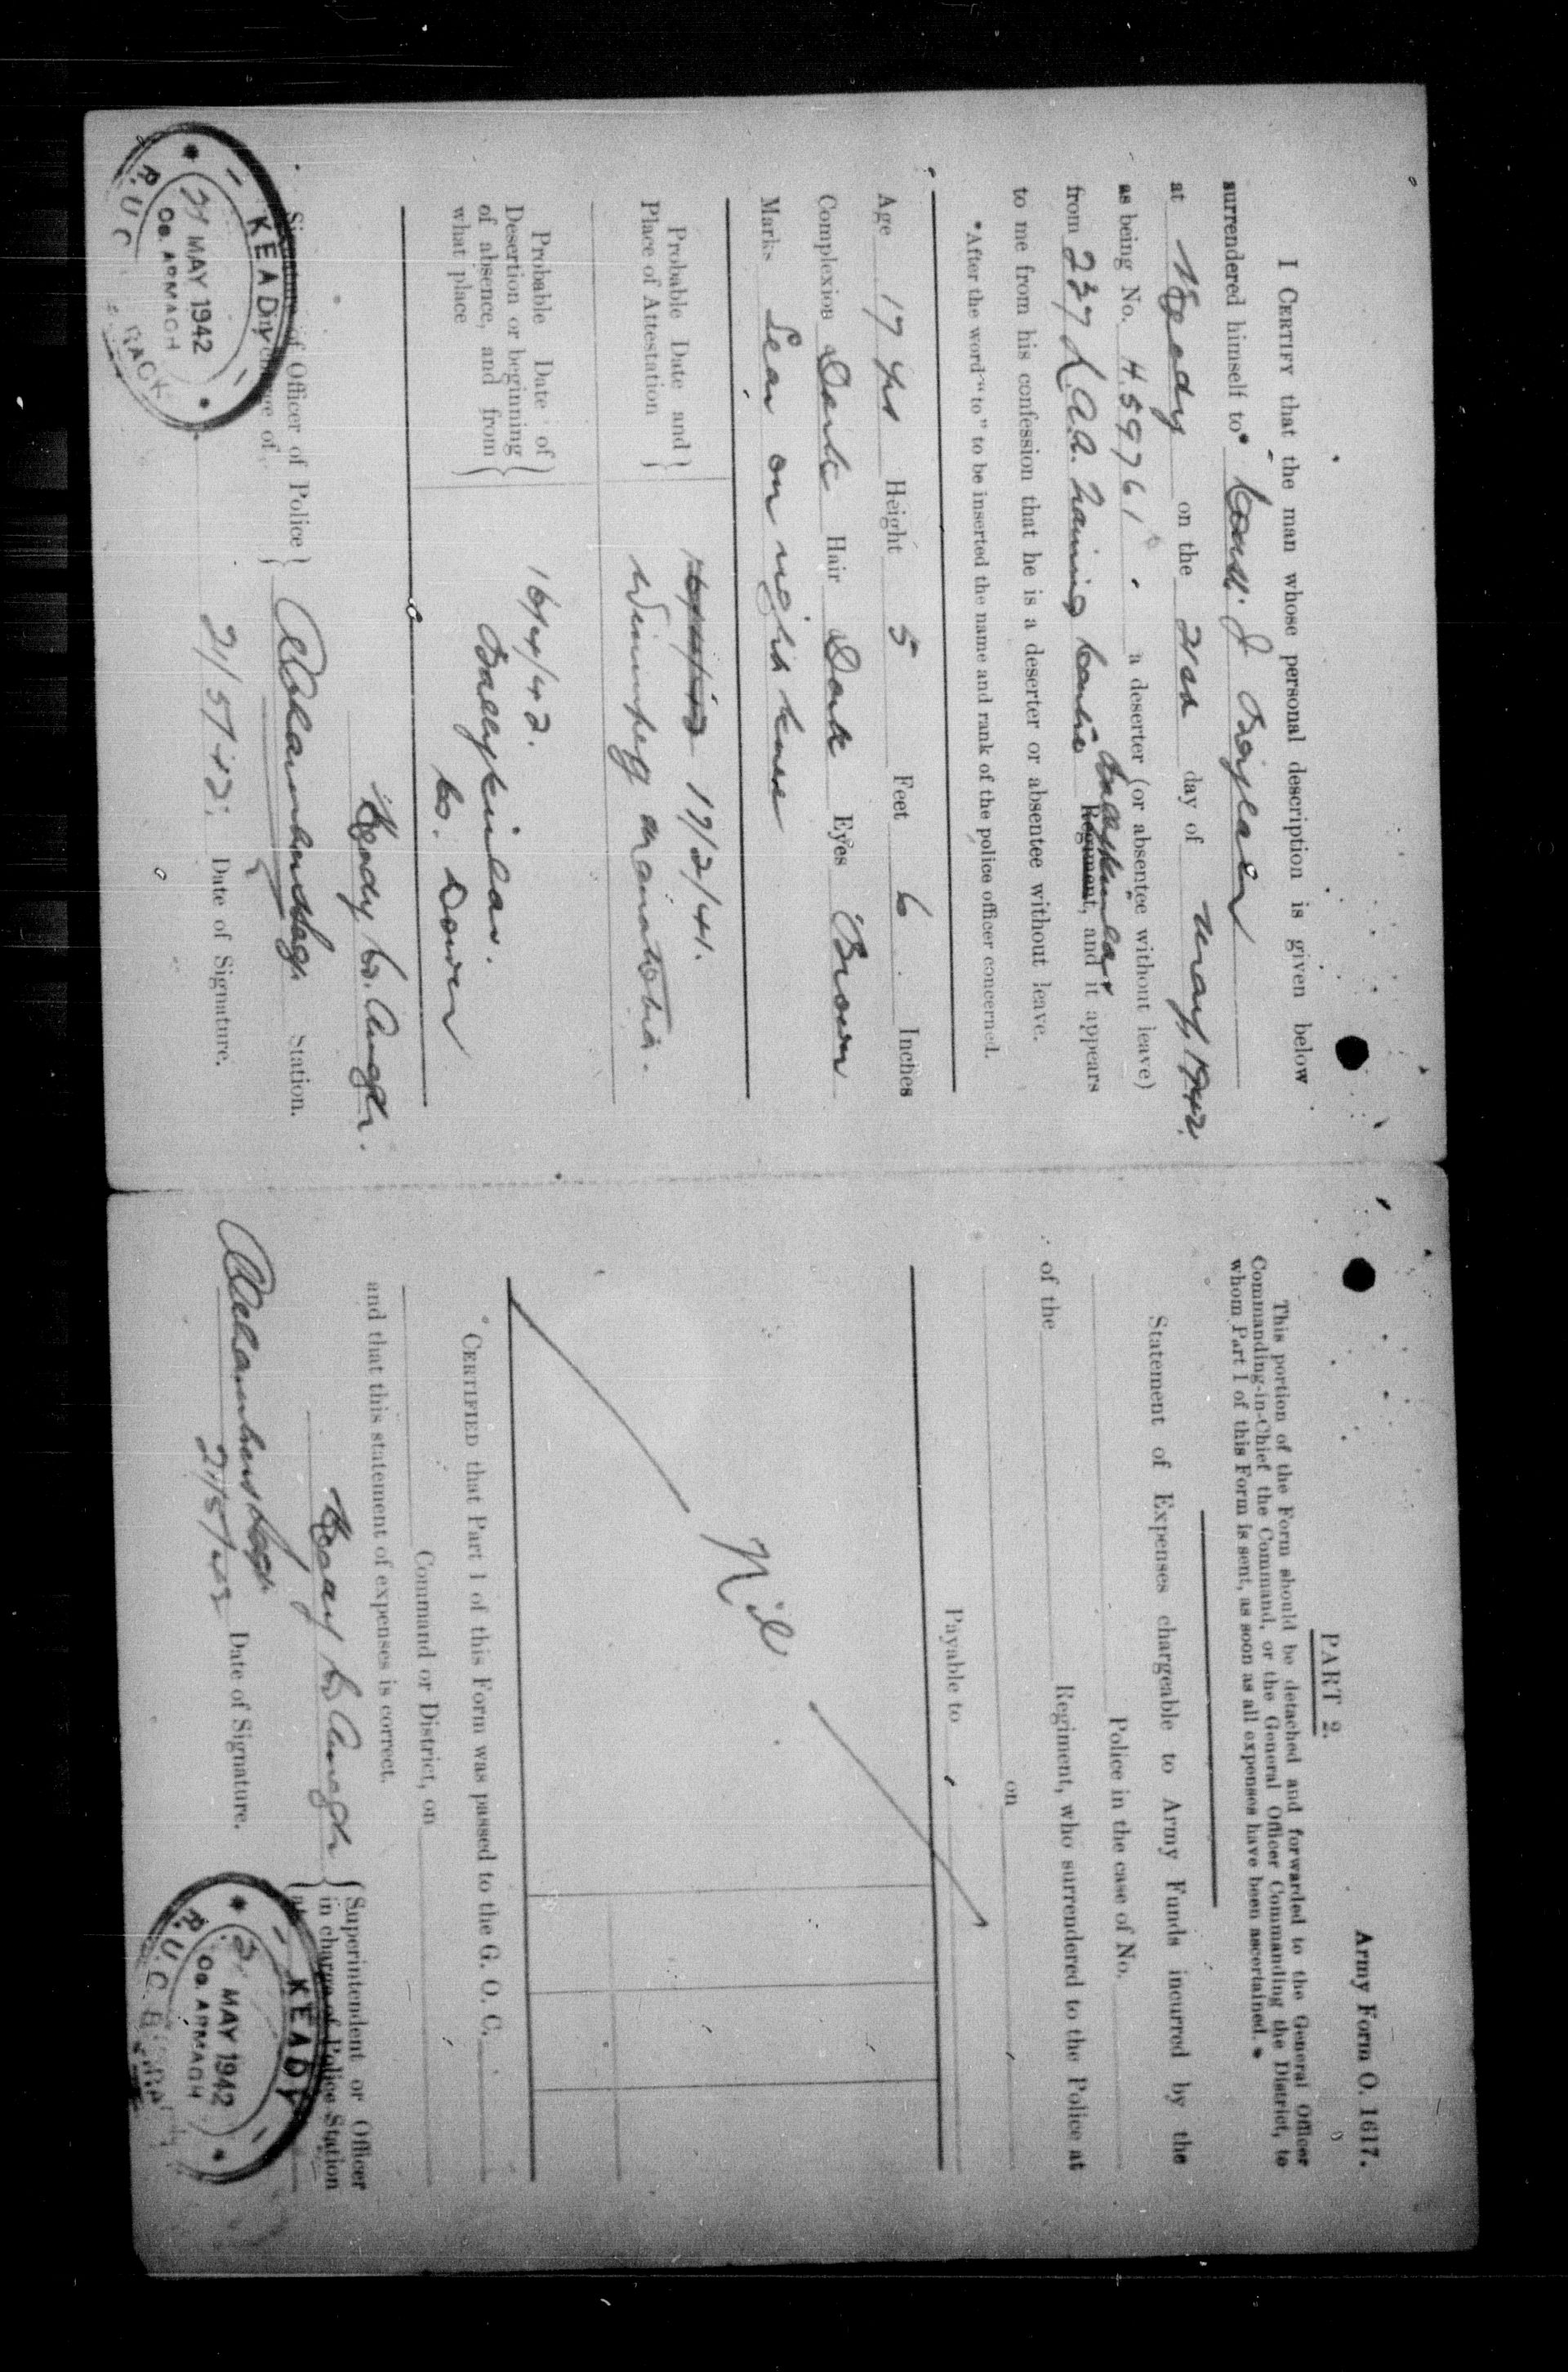 I CERTIFY that the man whose personal description is given below
surrendered himself to* Const. J Boylan
at Keady on the 21st day of May, 1942.
as being No. H.59761. a deserter (or absentee without leave)
Ballykinlar
from 237 L.A.A. Training Centre Regiment, and it appears
to me from his confession that he is a deserter or absentee without leave.
*After the word "to" to be inserted the name and rank of the police officer concerned.
Age 17 yrs Height 5 Feet 6 Inches
Complexion Dark Hair Dark Eyes Brown
Marks Scar on right knee
Probable Date and Place of Attestation } 17/2/41.
Winnipeg Manitoba.
Probable Date of Desertion or beginning of absence, and from what place } 16/4/42.
Ballykinlar.
Co. Down
Keady Co. Armagh.
Signature of Officer of Police } Station.
21/5/42. Date of Signature.
KEADY
21 MAY 1942
Co. ARMAGH
R.U.C.
Army Form O. 1617.
PART 2.
This portion of the Form should be detached and forwarded to the General Officer
Commanding-in-Chief the Command, or the General Officer Commanding the District, to
whom Part 1 of this Form is sent, as soon as all expenses have been ascertained.
Statement of Expenses chargeable to Army Funds incurred by the
Police in the case of No.
of the Regiment, who surrendered to the Police at
on
Payable to
Nil
CERTIFIED that Part 1 of this Form was passed to the G. O. C.
Command or District, on
and that this statement of expenses is correct.
Keady Co Armagh { Superintendent or Officer
in charge of Police Station
at
21/5/42 Date of Signature.
KEADY
MAY 1942
Co. ARMAGH
R.U.C.